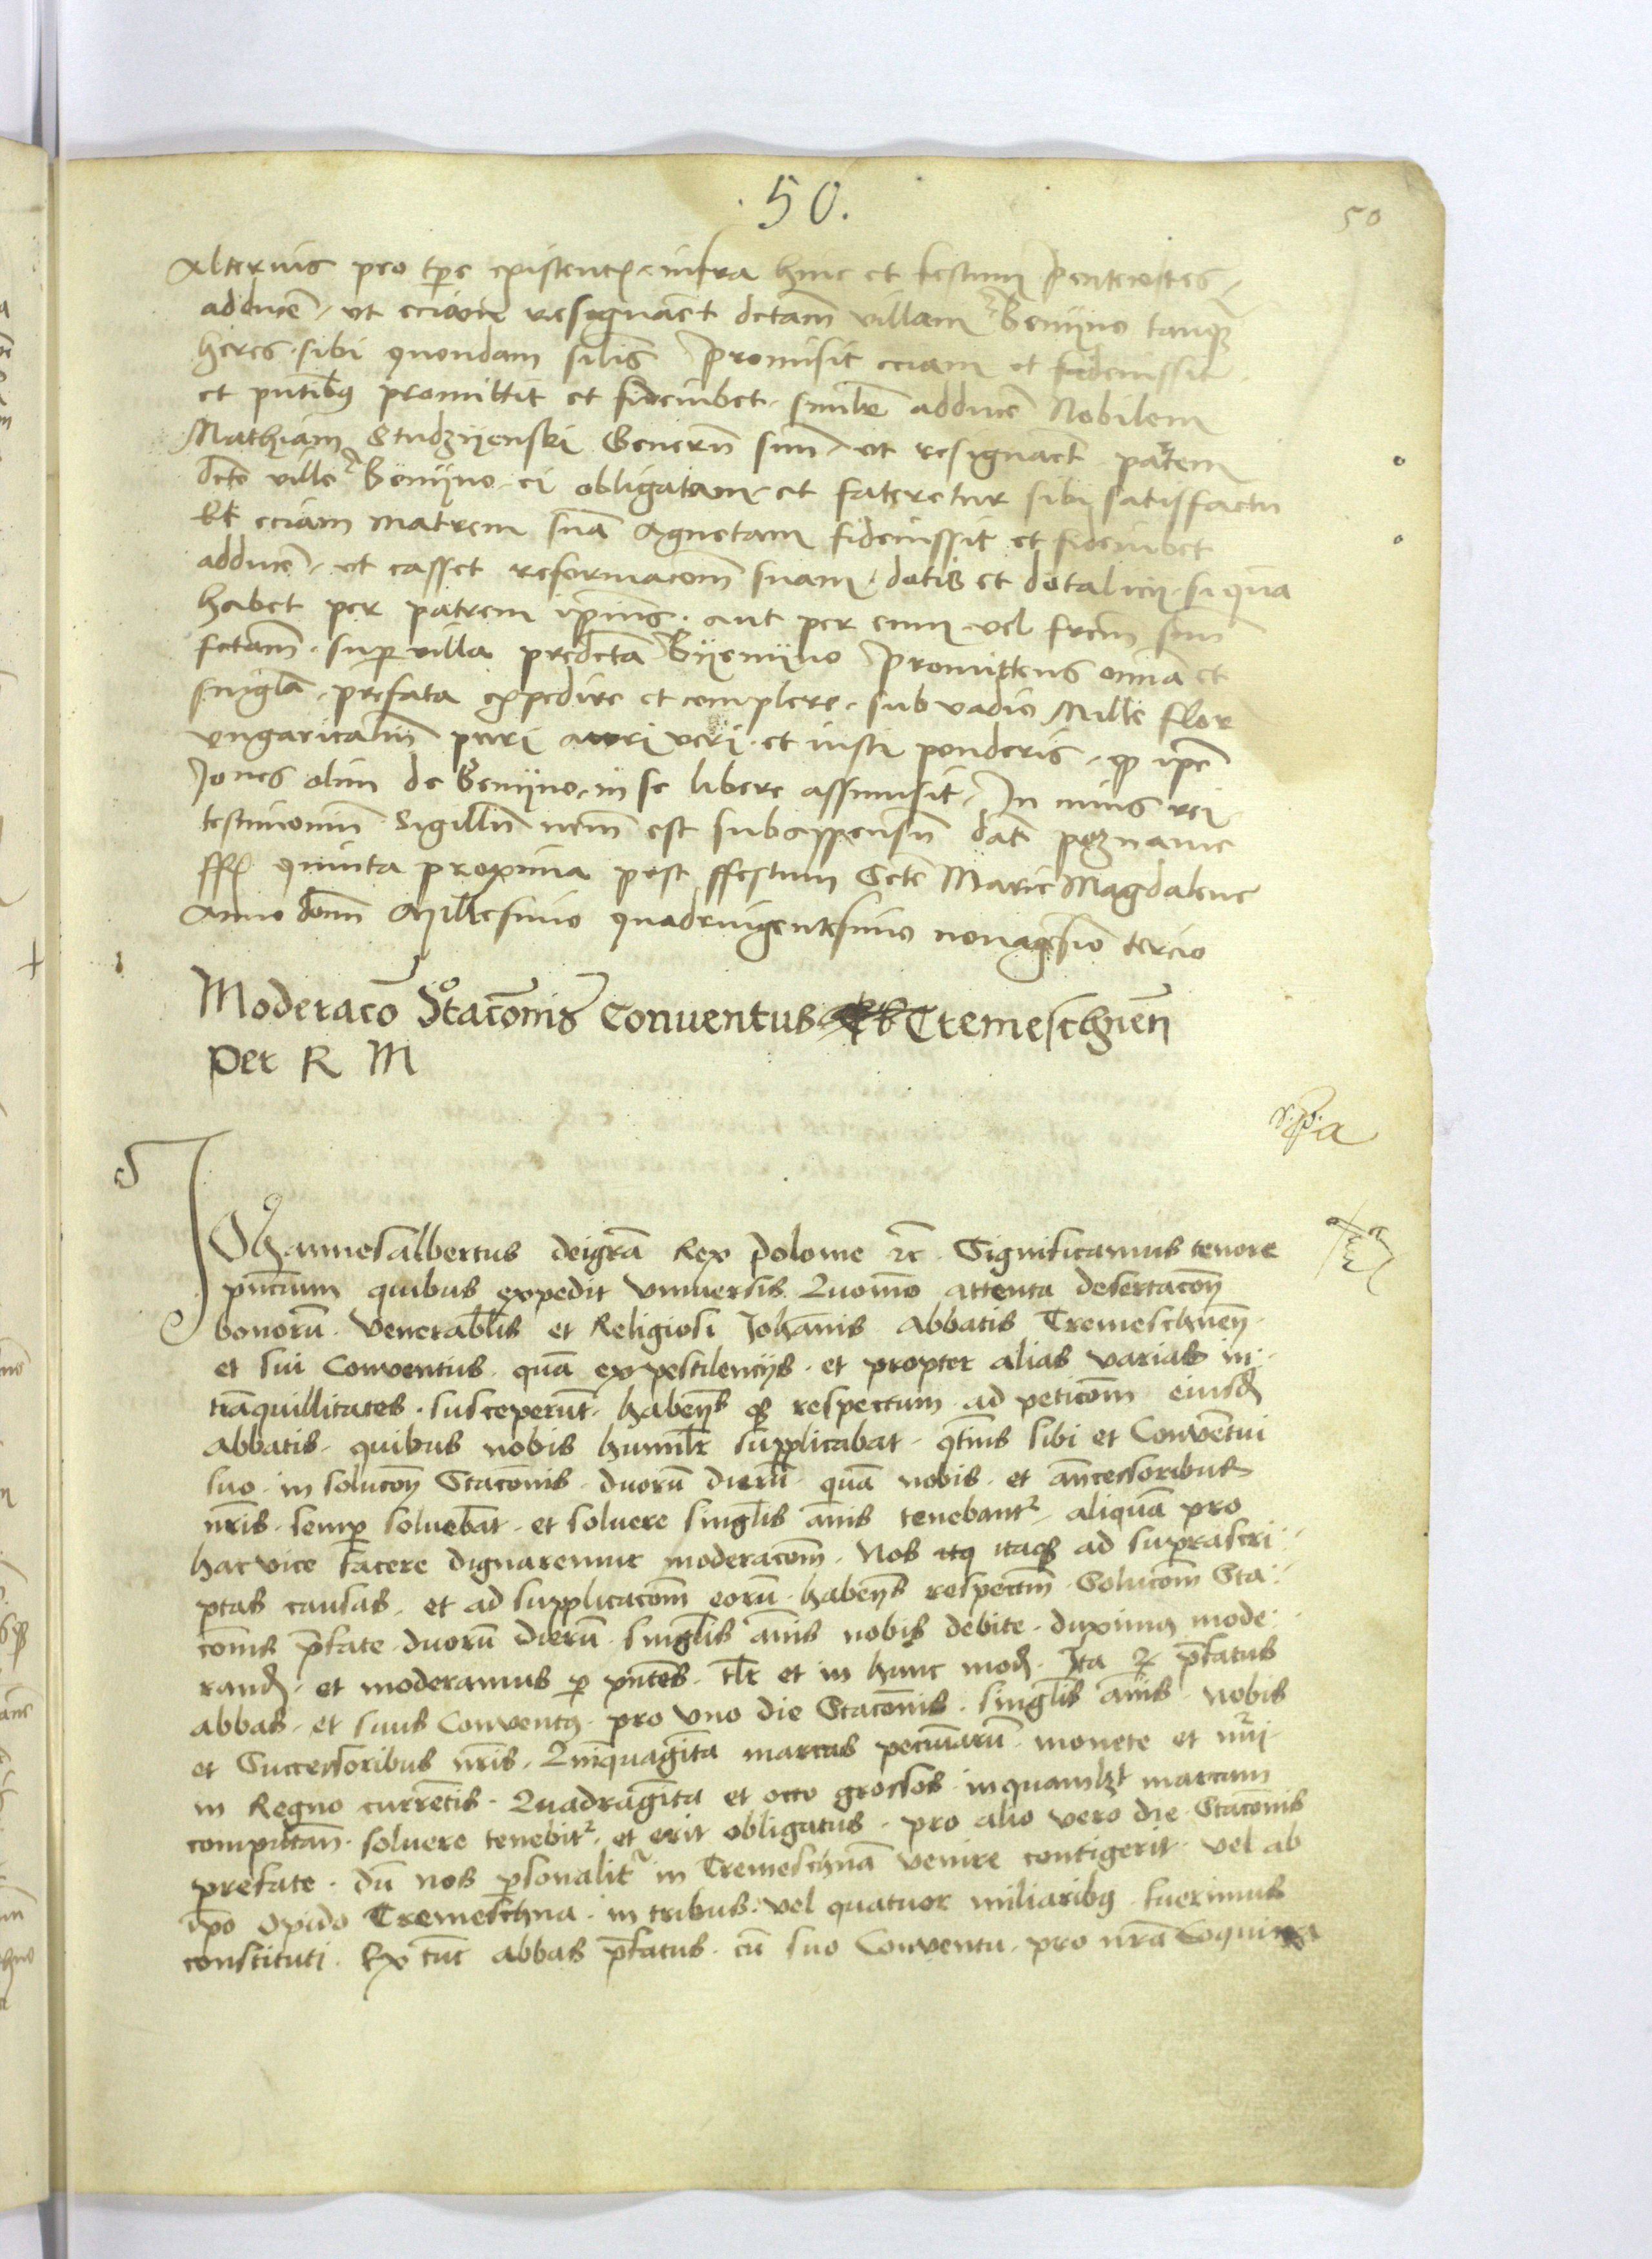 .50.
50
Alterius pro tpe existentes infra hinc et festum Pentecostes
adducē ut eciam resignaēt dctam villam Bemÿno tanquam
heres sibi quondam silis Promisit eciam et fideiussit
et pntibus promittit et fideiubet similr adducē Nobilem
Mathiam Studzÿenski Generū suū ut resignaēt partem
dcte ville Bemÿno ei obligatam et fateretur sibi satisfactū
Et eciam matrem suā Agnetam fideiussit et fideiubet
adducē ut casset reformacoem suam dotis et dotalicij si qua
habet per patrem ipius aut per eum vel frem suū
fctam sup villa predcta Bÿemÿno Promittens omia et
singla prefata expedire et complere sub vadio Mille flor
ungaricaliū puri auri veri et iusti ponderis qd ipe
Joes olim de Bemÿno in se libere assumsit In cuius rei
testimoniū Sigillū nrm est subappensū dat poznanie
ffe quinta proxima post ffestum Scte Marie Magdalene
Anno dom Millesimo quadringentesimo nonagesio tercio
Moderaco Stacōnis Conuentus Tremeschnēn
Per R M
Johannes albertus dei grā Rex Polonie rc Significamus tenore
pncium quibus expedit vniuersis Quomō attenta desertacōn
bonorū venerablis et Religiosi Johānis abbatis Tremeschnēn
et sui Conventus quā ex pestilencijs et propter alias varias in:
trāquillitates susceperūt habeñs qz respectum ad peticōm eiusd
abbatis quibus nobis humilr supplicabat qtnus sibi et Conventui
suo in solucōn Stacōnis duorū dierū quā nobis et ancessoribus
nris semp soluebāt et soluere singlis ānis tenebant aliquā pro
hac vice facere dignaremur moderacōm Nos itaqz ad suprascri:
ptas causas et ad supplicacōm eorū habeñs respectm Solucōm Sta:
cōnis pfate duorū dierū singlis ānis nobis debite duximus mode:
rand et moderamus p pntes tlr et in hunc mod Ita qz pfatus
abbas et suus Conventus pro vno die Stacōnis singlis ānis nobis
et Successoribus nris Quinquaginta marcas pecuniarū monete et nūi
in Regno currētis Quadraginta et octo grossos in quamlzt marcam
computan soluere tenebit et erit obligatus pro alio vero die Stacōnis
prefate dū nos psonaliter in Tremeschnā venire contigerit vel ab
ipo opido Tremeschna in tribus vel quatuor miliaribus fuerimus
constituti Ex tūc abbas pfatus cū suo Conventu pro nrā Coquina